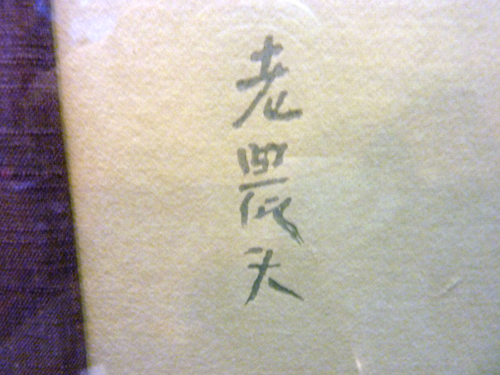 老農夫